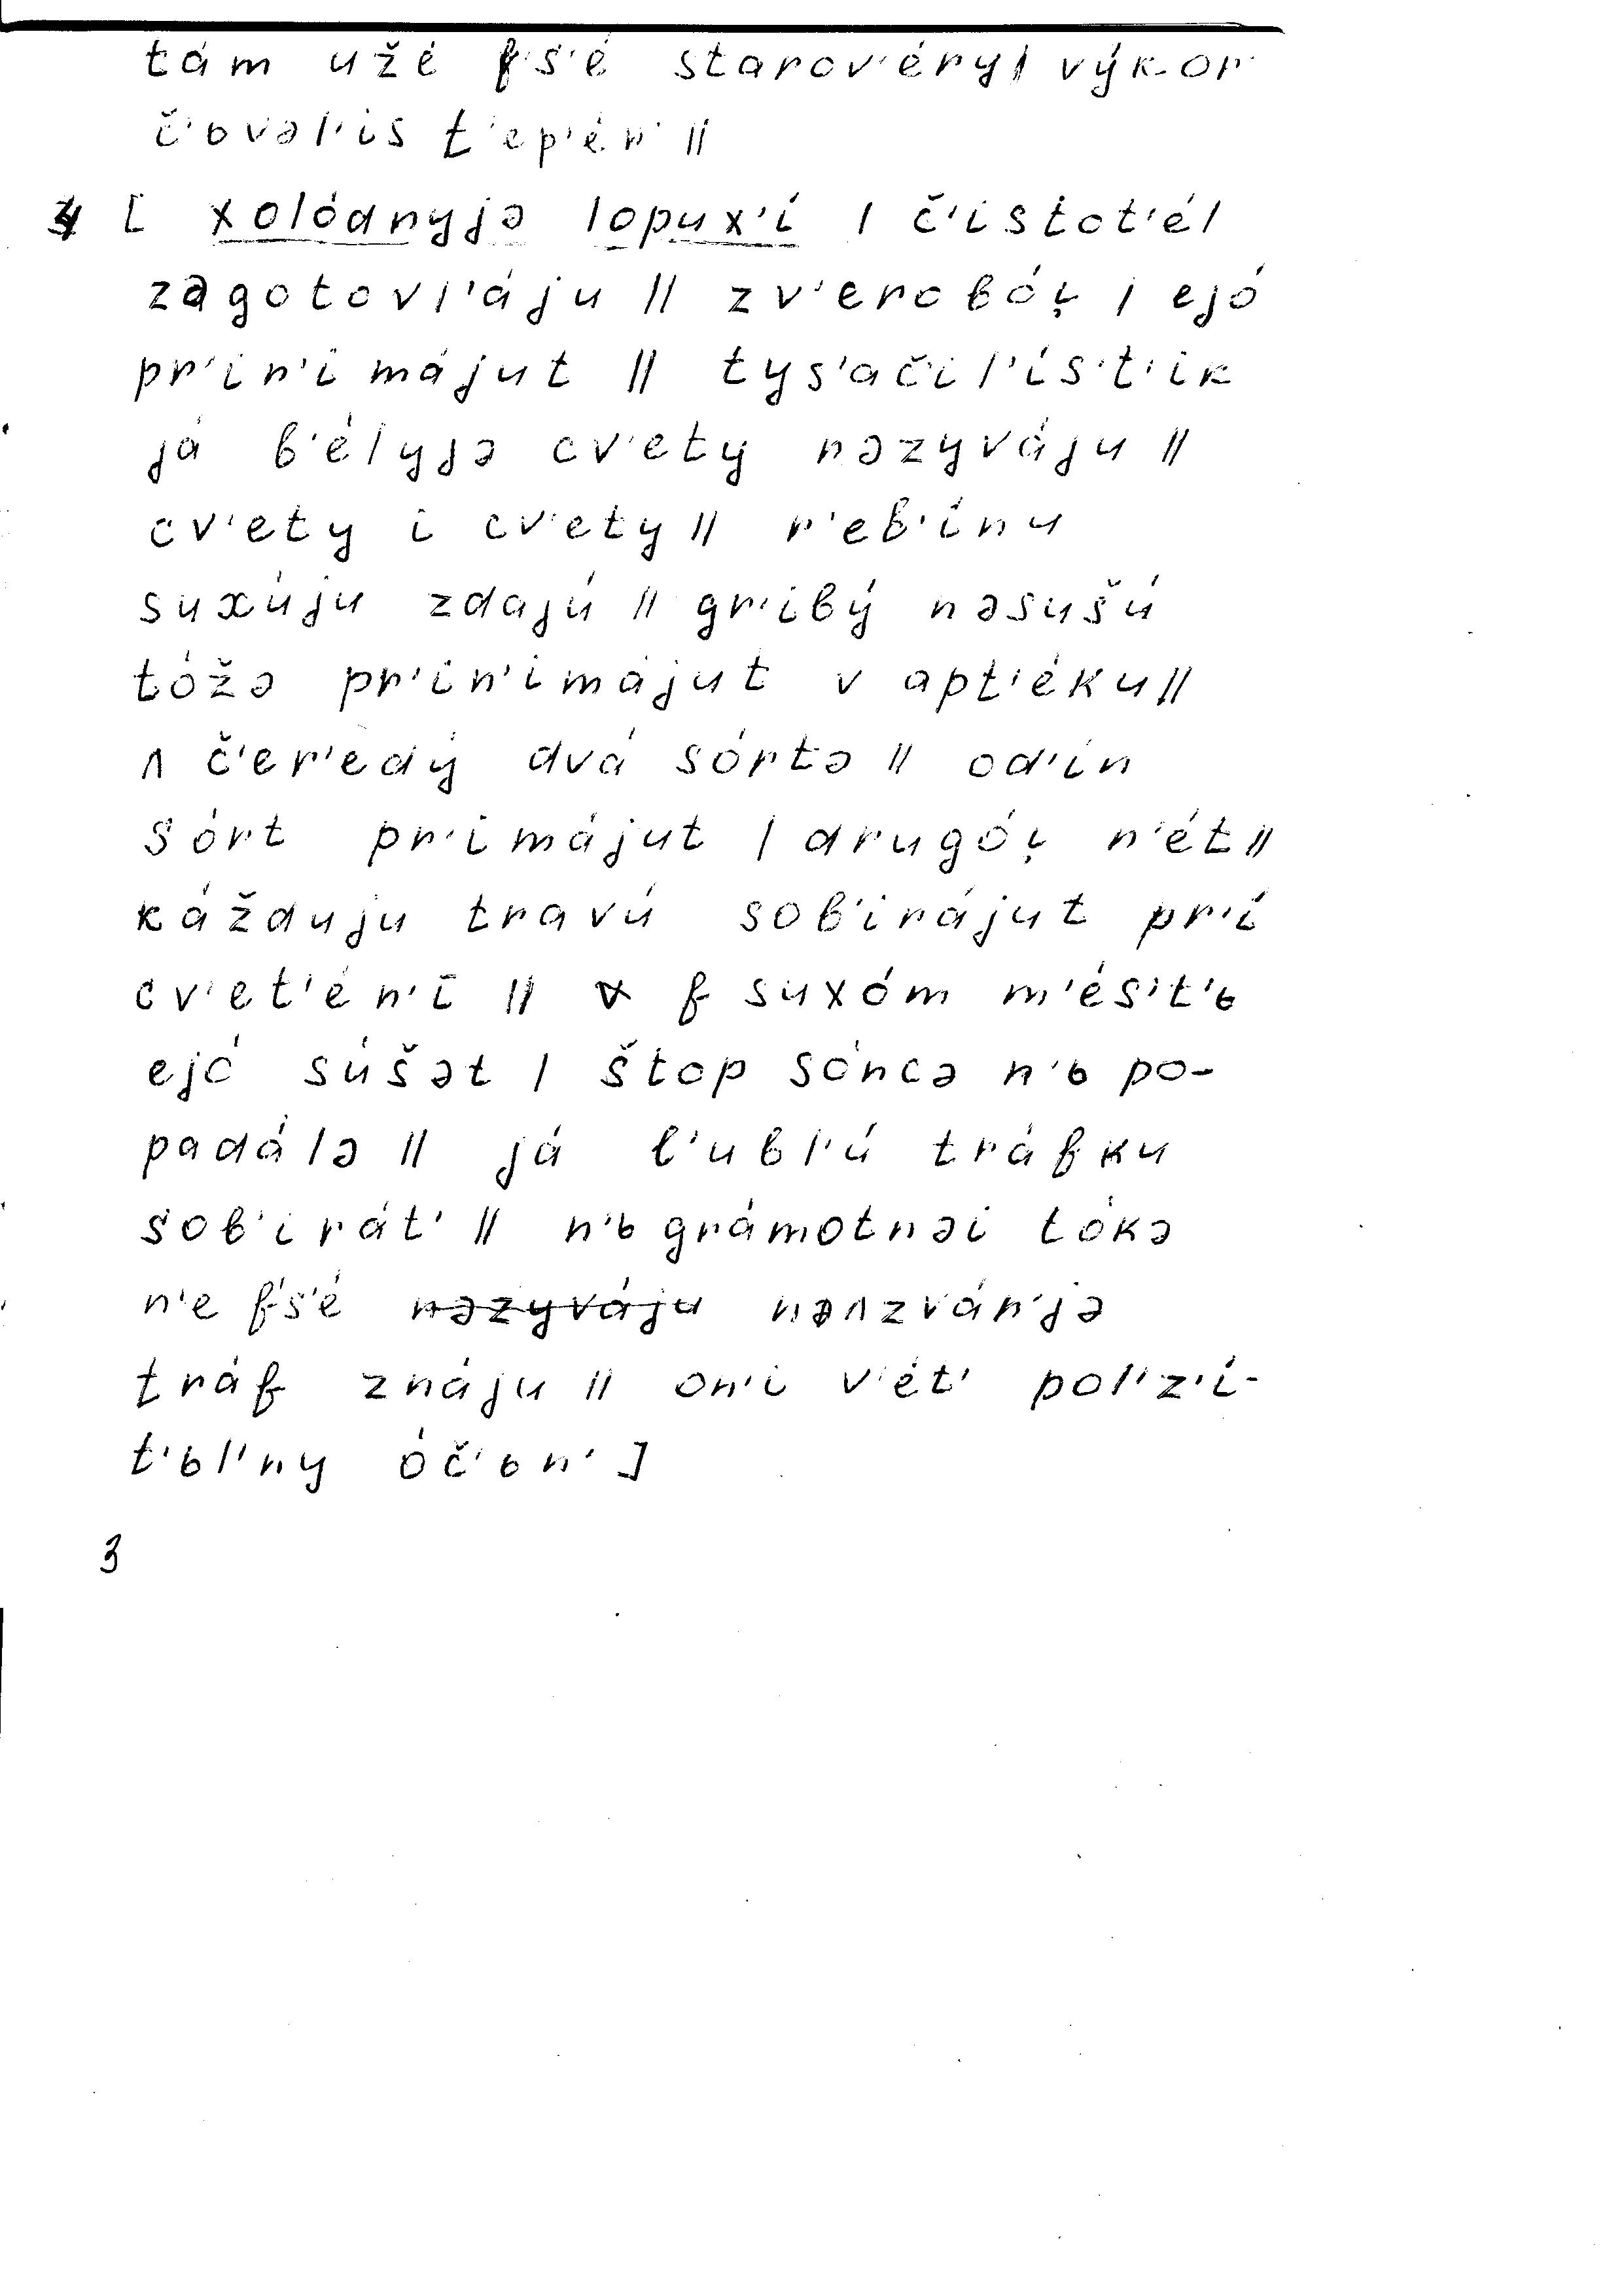 tám užé f's'é starov'éry| výkor
č'ьvəl'is t'ep'ér' ||
4 [ xolódnyjə lopux'í | č'istot'él
zagotovl'áju || zv'erobói̯ | ejó
pr'in'imájut || tys'ačil'ís't'ik
já b'élyjə cv'ety nəzyváju ||
cv'ety i cv'ety || r'eb'ínu
suxúju zdajú || gr'ibý nəsušú
tóžə pr'in'imájut v apt'éku ||
ʌ č'er'edý dvá sórtə || od'ín
sórt pr'imájut | drugói̯ n'ét ||
kážduju travú sob'irájut pr'í
cv'et'én'ī || f suxóm m'és't'ь
ejó súšət | štop sóncə n'ь po-
padálə || já l'ubl'ú tráfku
sob'irát' || n'ь grámotnəi tókə
n'e f's'é nəzyváju nəʌzván'jə
tráf znáju || on'i v'ét' pol'z'í-
t'ьl'ny óč'ьn' ]
3